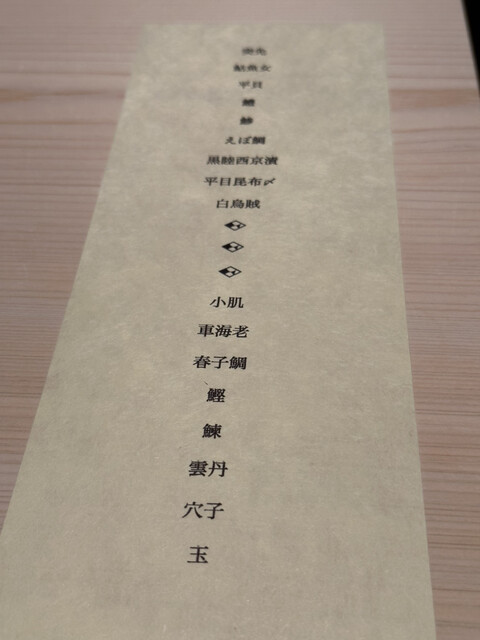 平貝
えぼ鯛
黒睦西京漬
平目昆布〆
白烏賊
小肌
車海老
春子鯛
鰹
鰊
雲丹
穴子
玉